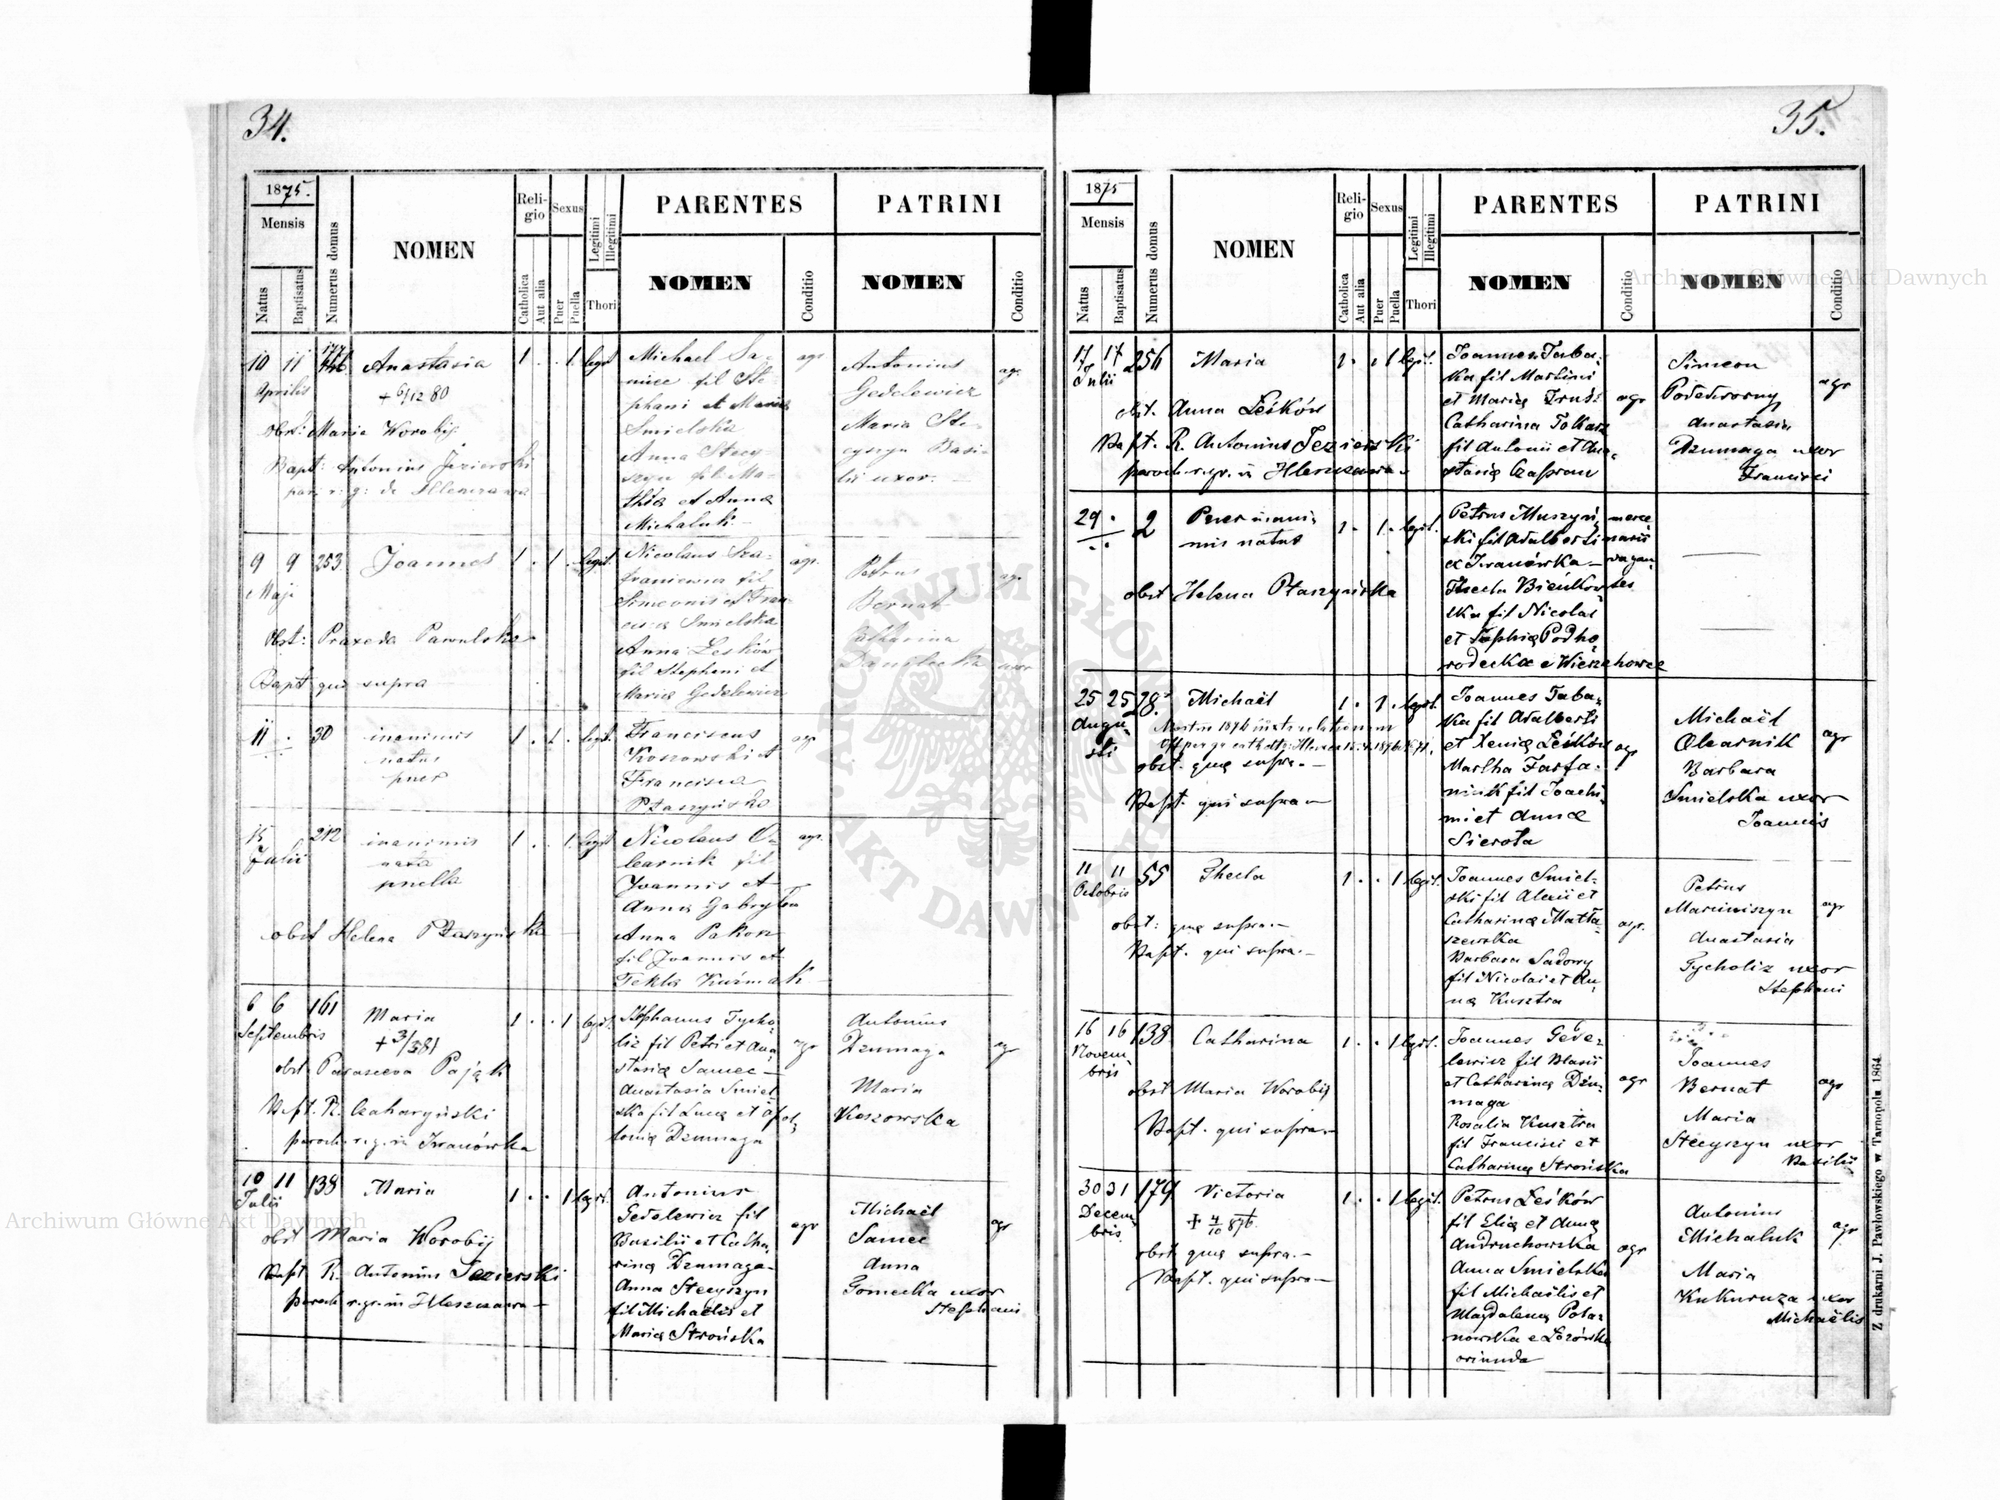 34.
1875.
Mensis
Natus
Baptisatus
Numerus domus
NOMEN
Reli-
gio
Catholica
Aut alia
Sexus
Puer
Puella
Legitimi
Illegitimi
Thori
PARENTES
NOMEN
Conditio
PATRINI
NOMEN
Conditio
10 11 Anastasia 1 . . 1 legit
Aprilis
+ 6/12 80
Obst: Maria Worobij
Bapt: Antonius Jezierski
par. r. g. de Hleszczawa
Michael Sa-
miec fil Ste-
phani et Maria
Smielska
Anna Stecy-
szyn fil Ma-
thia et Anna
Michaluk
agr
Antonius
Gedelewicz
Maria Ste-
cyszyn Basi-
lii uxor.
agr
9 9 253 Joannes 1 . 1 . legit.
Maji
Obst: Praxeda Pawulska
Bapt qui supra
Nicolaus Sza-
franiewicz fil
Simeonis et Fran-
cisca Smielska
Anna Leśków
fil Stephani et
Maria Gedelewicz
agr.
Petrus
Bernat
Catharina
Danilecka uxor
agr
11 . 30 inanimis 1 . 1 . legit.
natus
puer
Franciscus
Koszowski et
Francisca
Ptaszyńska
agr
15 212 inanimis 1 . . 1 legit
Julii
nata
puella
obst Helena Ptaszyńska
Nicolaus O-
learnik fil
Joannis et
Anna Gabryłon
Anna Pakosz
fil Joannis et
Tekla Kuźmak
agr.
6 6 161 Maria 1 . . 1 legit.
Septembris
+ 3/5 81
obst Parasceva Pająk
Bapt. R. Zacharyński
paroch r. g. in Iwanówka
Stephanus Tycho-
liz fil Petri et Ana-
stasia Samec
Anastasia Smiel-
ska fil Luca et Apol-
lonia Dzumaga
agr
Antonius
Dzumaga
Maria
Koszowska
agr
10 11 138 Maria 1 . . 1 legit.
Julii
obst Maria Worobij
Bapt R. Antonius Jezierski
paroch r. gr. in Hleszczawa
Antonius
Gedelewicz fil
Basilii et Catha-
rina Dzumaga
Anna Stecyszyn
fil Michaelis et
Maria Strońska
agr
Michaël
Samec
Anna
Gomecka uxor
Stephani
agr
35.
1875
Mensis
Natus
Baptisatus
Numerus domus
NOMEN
Reli-
gio
Catholica
Aut alia
Sexus
Puer
Puella
Legitimi
Illegitimi
Thori
PARENTES
NOMEN
Conditio
PATRINI
NOMEN
Conditio
17 17 256 Maria 1 . . 1 legit.
Julii
obst. Anna Leśków
Bapt. R. Antonius Jezierski
paroch. r. gr. in Hleszczawa
Joannes Taba-
ka fil Martini
et Maria Druś
Catharina Tokarz
fil Antonii et Ana-
stasia Czapran
agr
Simeon
Podedworny
Anastasia
Dzumaga uxor
Francisci
agr
29 . 2 Puer inani- 1 . 1 . legit.
mis natus
obst Helena Ptaszyńska
Petrus Muszyń-
ski fil Adalberti
ex Iwanówka
Thecla Bieńkow-
ska fil Nicolai
et Sophia Podho-
rodecka e Wierzchowce
merce
narii
vagan-
tes
25 25 78 Michaël 1 . 1 . legit.
Augu-
sti
Mortuus 1876 juxta relationem
obst. quę supra.
Bapt. qui supra
Joannes Taba-
ka fil Adalberti
et Xenia Leśków
Martha Farfa-
niuk fil Joachi-
mi et Anna
Sierota
agr
Michaël
Olearnik
Barbara
Smielska uxor
Joannis
agr
11 11 55 Thecla 1 . . 1 legit.
Octobris
obst: quę supra.
Bapt. qui supra.
Joannes Smiel-
ski fil Alexii et
Catharina Matła-
szewska
Barbara Sadowy
fil Nicolai et An-
na Kusztra
agr.
Petrus
Marciniszyn
Anastasia
Tycholiz uxor
Stephani
agr
16 16 138 Catharina 1 . . 1 legit.
Novem-
bris
obst Maria Worobij
Bapt. qui supra
Joannes Gede-
lewicz fil Blasii
et Catharina Dzu-
maga
Rosalia Kusztra
fil Francisci et
Catharina Strońska
agr
Joannes
Bernat
Maria
Stecyszyn uxor
Basilii
agr
30 31 179 Victoria 1 . . 1 legit.
Decem-
bris
+ 4/10 876.
obst quę supra.
Bapt. qui supra
Petrus Leśków
fil Elia et Anna
Andruchowska
Anna Smielska
fil Michaëlis et
Magdalena Pota-
nowska e Łozówka
oriunda
agr
Antonius
Michaluk
Maria
Kukuruza uxor
Michaëlis
agr
Z drukarni J. Pawłowskiego w Tarnopolu 1864.
Archiwum Główne Akt Dawnych
Archiwum Główne Akt Dawnych
ARCHIWUM GŁÓWNE AKT DAWNYCH